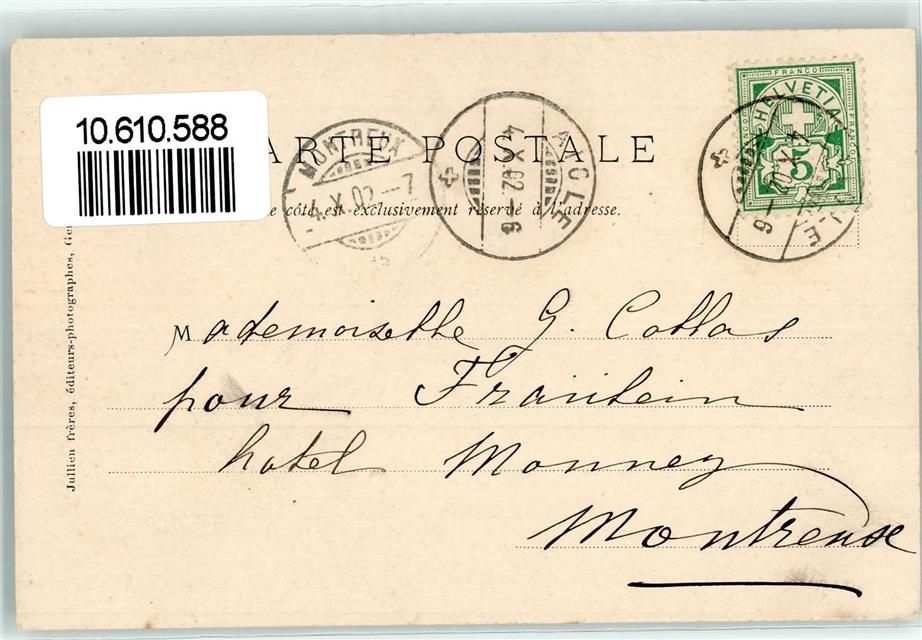 10.610.588
ARTE POSTALE
e côté est exclusivement réservé à l'adresse.
MONTREUX
4 X 02 - 7
AIGLE
4 X. 02 - 6
FRANCO
HELVETIA
FRANCO FRANCO
5
Mademoiselle G. Collas
pour Fräulein
hotel Monney
Montreux
Jullien frères, éditeurs-photographes, Ge